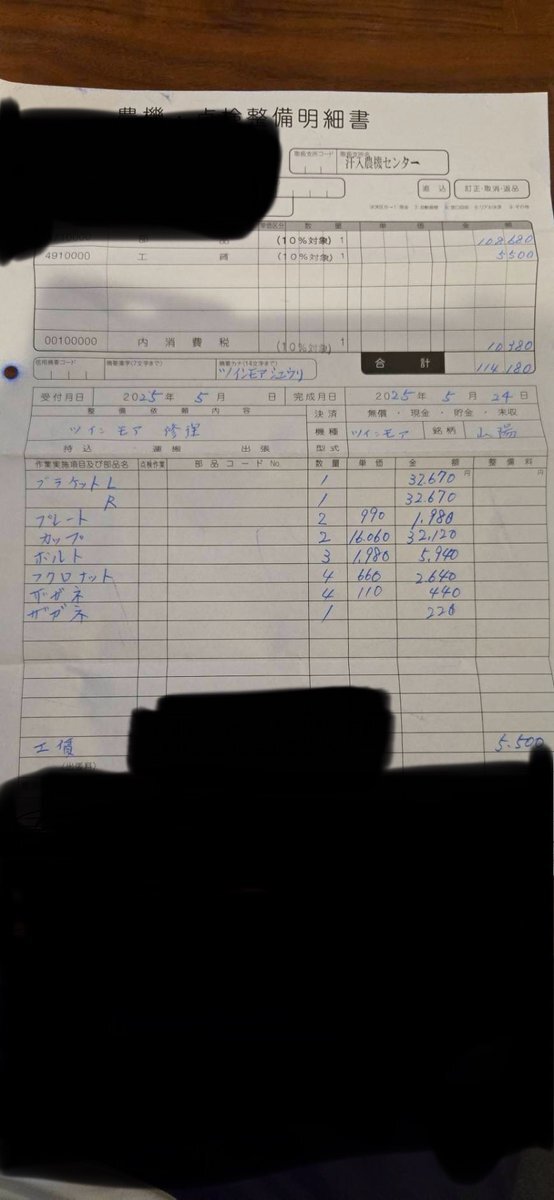 整備明細書
取扱支所コード 取扱支所名 汗入農機センター
直 込 訂正・取消・返品
数 量 単 価 金 額
品 (10%対象) 1 108,680
4910000 工 賃 (10%対象) 1 5500
00100000 内 消 費 税 (10%対象) 1 10,380
信用摘要コード 摘要漢字(7文字まで) 摘要カナ(14文字まで) ツインモアシュウリ 合 計 114,180
受付月日 2025年 5月 日 完成月日 2025年 5月 24日
整 備 依 頼 内 容 決済 無償・現金・貯金・未収
ツインモア 修理 機種 ツインモア 銘柄 山陽
持 込 運 搬 出 張 型式
作業実施項目及び部品名 点検作業 部品コードNo. 数量 単価 金 額 整備料
円 円
ブラケット L 1 32.670
R 1 32.670
プレート 2 990 1.980
カップ 2 16.060 32.120
ボルト 3 1.980 5.940
フクロナット 4 660 2.640
ザガネ 4 110 440
ザガネ 1 220
工賃 5.500